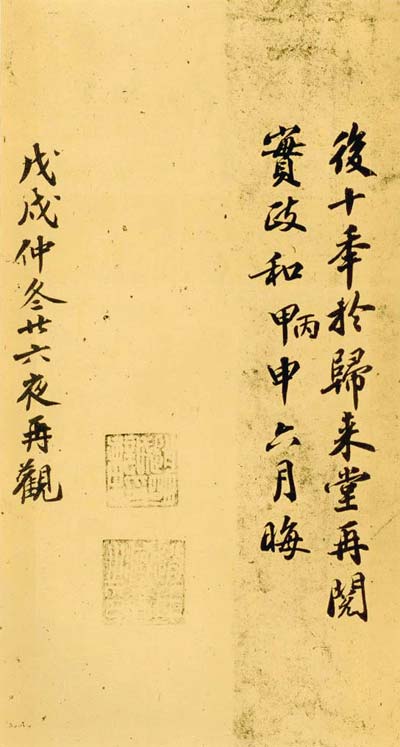 後十年於歸来堂再閱
實政和甲丙申六月晦
戊戌仲冬廿六夜再觀